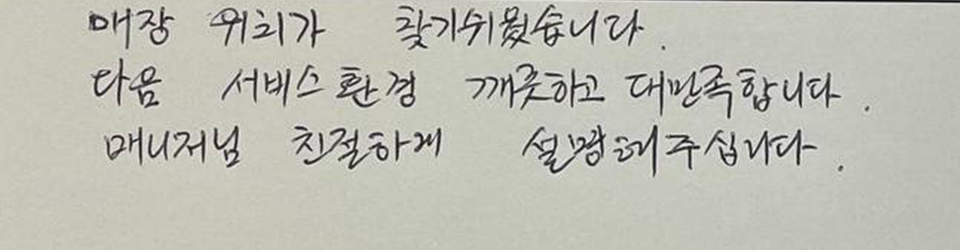 매장 위치가 찾기쉬웠습니다.
다음 서비스 환경 깨끗하고 대만족합니다.
매니저님 친절하게 설명해주십니다.